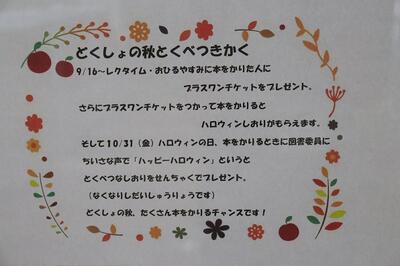 どくしょの秋とくべつきかく
9/16～レクタイム・おひるやすみに本をかりた人に
プラスワンチケットをプレゼント。
さらにプラスワンチケットをつかって本をかりると
ハロウィンしおりがもらえます。
そして10/31（金）ハロウィンの日、本をかりるときに図書委員に
ちいさな声で「ハッピーハロウィン」というと
とくべつなしおりをせんちゃくでプレゼント。
（なくなりしだいしゅうりょうです）
どくしょの秋、たくさん本をかりるチャンスです！